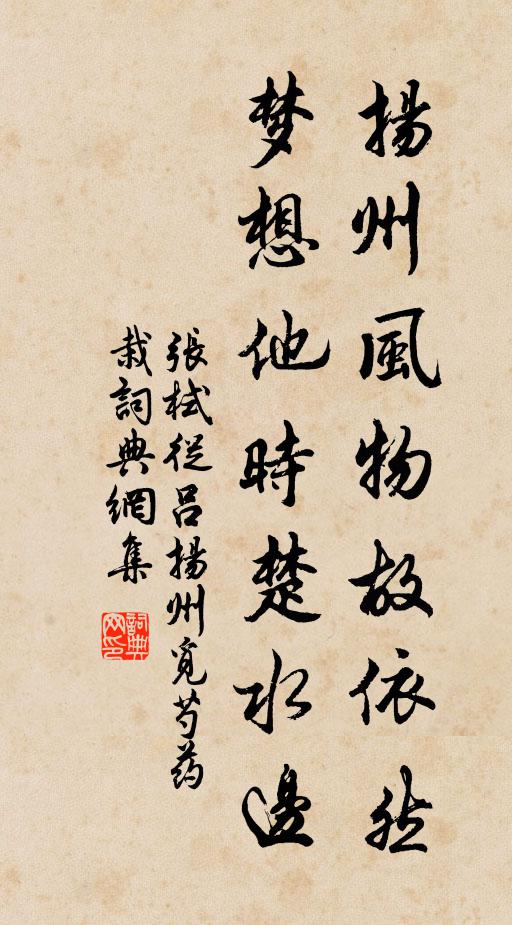 揚州風物故依然
梦想他時楚水邊
張栻從吕揚州覓芍药
栽詞典網集
詞典网印